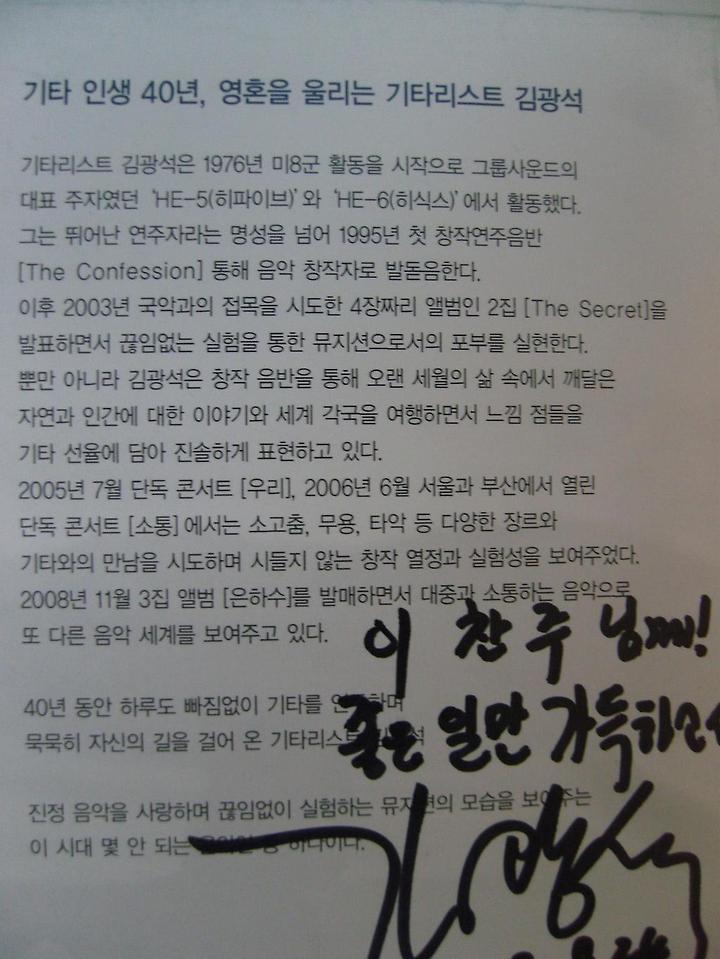 기타 인생 40년, 영혼을 울리는 기타리스트 김광석
기타리스트 김광석은 1976년 미8군 활동을 시작으로 그룹사운드의
대표 주자였던 'HE-5(히파이브)'와 'HE-6(히식스)'에서 활동했다.
그는 뛰어난 연주자라는 명성을 넘어 1995년 첫 창작연주음반
[The Confession] 통해 음악 창작자로 발돋음한다.
이후 2003년 국악과의 접목을 시도한 4장짜리 앨범인 2집 [The Secret]을
발표하면서 끊임없는 실험을 통한 뮤지션으로서의 포부를 실현한다.
뿐만 아니라 김광석은 창작 음반을 통해 오랜 세월의 삶 속에서 깨달은
자연과 인간에 대한 이야기와 세계 각국을 여행하면서 느낌 점들을
기타 선율에 담아 진솔하게 표현하고 있다.
2005년 7월 단독 콘서트 [우리], 2006년 6월 서울과 부산에서 열린
단독 콘서트 [소통]에서는 소고춤, 무용, 타악 등 다양한 장르와
기타와의 만남을 시도하며 시들지 않는 창작 열정과 실험성을 보여주었다.
2008년 11월 3집 앨범 [은하수]를 발매하면서 대중과 소통하는 음악으로
또 다른 음악 세계를 보여주고 있다.
이 찬 주 님께!
40년 동안 하루도 빠짐없이 기타를 연주하며
묵묵히 자신의 길을 걸어 온 기타리스트 김광석
좋은 일만 가득하소서
진정 음악을 사랑하며 끊임없이 실험하는 뮤지션의 모습을 보여주는
이 시대 몇 안 되는 음악인 중 하나이다.
김광석